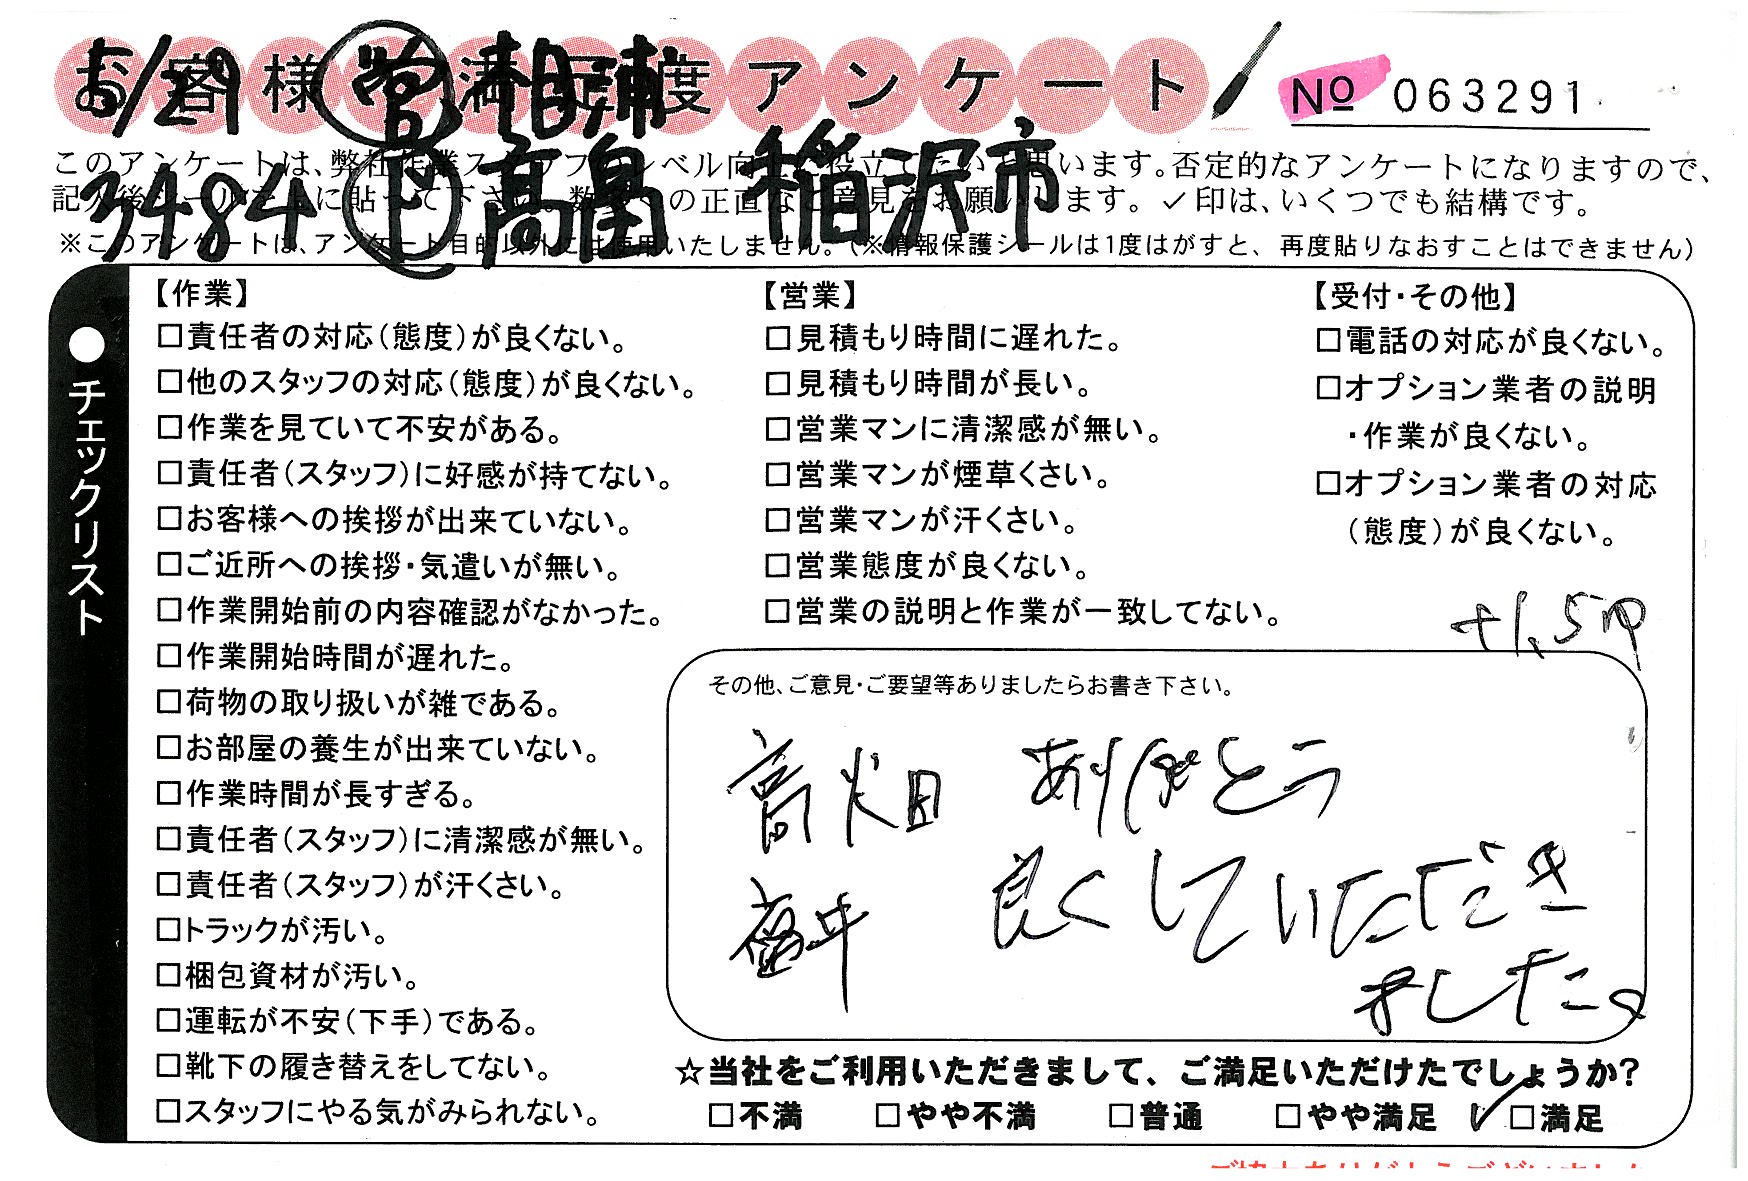 お客様満足度アンケート
5/29 営 杉浦
№ 063291
3484 P 高畠 稲沢市
このアンケートは、弊社作業スタッフのレベル向上に役立てたいと思います。否定的なアンケートになりますので、
記入後シールを上に貼って下さい。数多くの正直なご意見をお願いします。✓印は、いくつでも結構です。
※このアンケートは、アンケート目的以外には使用いたしません。(※情報保護シールは1度はがすと、再度貼りなおすことはできません)
●チェックリスト
【作業】
□責任者の対応(態度)が良くない。
□他のスタッフの対応(態度)が良くない。
□作業を見ていて不安がある。
□責任者(スタッフ)に好感が持てない。
□お客様への挨拶が出来ていない。
□ご近所への挨拶・気遣いが無い。
□作業開始前の内容確認がなかった。
□作業開始時間が遅れた。
□荷物の取り扱いが雑である。
□お部屋の養生が出来ていない。
□作業時間が長すぎる。
□責任者(スタッフ)に清潔感が無い。
□責任者(スタッフ)が汗くさい。
□トラックが汚い。
□梱包資材が汚い。
□運転が不安(下手)である。
□靴下の履き替えをしてない。
□スタッフにやる気がみられない。
【営業】
□見積もり時間に遅れた。
□見積もり時間が長い。
□営業マンに清潔感が無い。
□営業マンが煙草くさい。
□営業マンが汗くさい。
□営業態度が良くない。
□営業の説明と作業が一致してない。
【受付・その他】
□電話の対応が良くない。
□オプション業者の説明
・作業が良くない。
□オプション業者の対応
(態度)が良くない。
その他、ご意見・ご要望等ありましたらお書き下さい。
高畑 ありがとう
良くしていただき
ました。
☆当社をご利用いただきまして、ご満足いただけたでしょうか?
□不満 □やや不満 □普通 □やや満足 ✓□満足